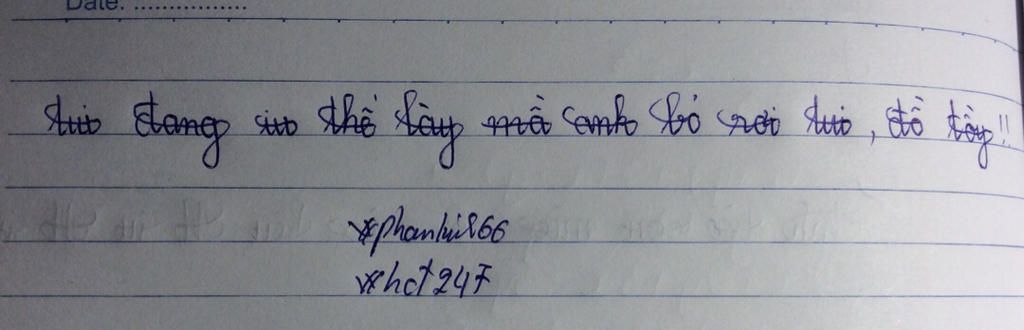 Date: ................
tui đang iu thế này mà anh bỏ rơi tui, đồ tồy!!
*phanlu866
*hot24F